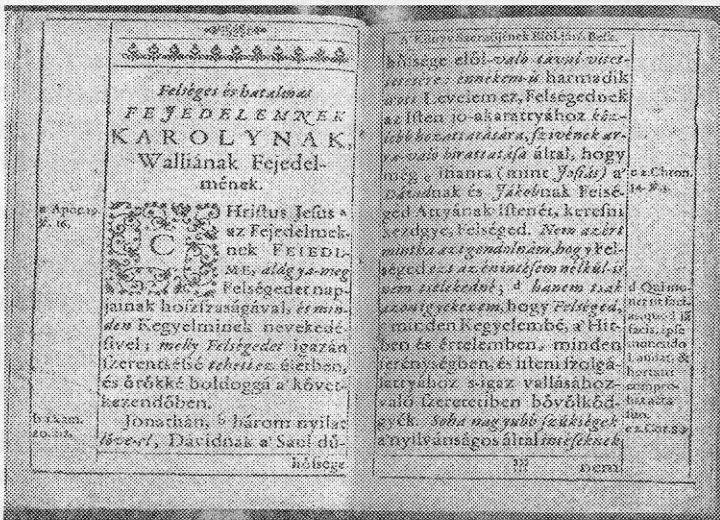 Felséges és hatalmas
FEJEDELEMNEK
KAROLYNAK,
Walliának Fejedel-
mének.
a Apoc. 19.
℣. 16.
CHristus Jesus a
az Fejedelmek-
nek FEJEDEL-
ME, áldgya-meg
Felségedet nap-
jainak hoszszaságával, és min-
den Kegyelminek nevekedé-
sivel; melly Felségedet igazán
szerentséssé tehesse ez életben,
és örökké boldoggá a' követ-
kezendőben.
b 1. Sam.
20. 20.
Jonathán, b három nyilat
lőve-el, Dávidnak a' Saul dü-
hössége
A Könyv szerzőjének Elöl-járó Besz.
hössége elöl-való távul
ennékem-is harmadik
Levelem ez, Felségednek
az Isten jo-akarattyához
szivének
való birattatása által, hogy
még c ifianta (mint Josiás) a'
Dávidnak és Jákobnak Felsé-
ged Attyának Istenét, keresni
kezdgye, Felséged. Nem azért
mintha azt gondolnám, hogy Fel-
séged ezt az én intésem nélkül-is
nem tselekedné; d hanem tsak
azon igyekezem, hogy Felséged,
e minden Kegyelembē, a' Hit-
ben és értelemben, minden
serénységben, és isteni szolgá-
lattyához s-igaz vallásához-
való szeretetiben bövölköd-
gyék. Soha nagyubb szükségek
a' nyilvánságos által intéseknek
nem
c 2. Chron.
34. ℣. 3.
d Qui mo-
net ut faci-
as, quod jā
facis, ipse
monendo
Laudat, &
hortatu
compro-
bat acta
suo.
e 2. Cor. 8. 7.